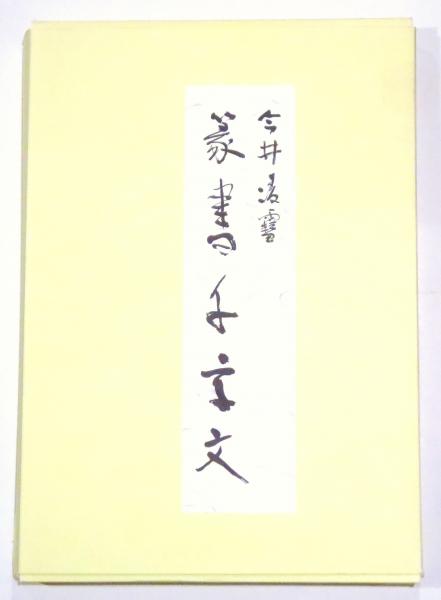 今井凌雪
篆書千字文